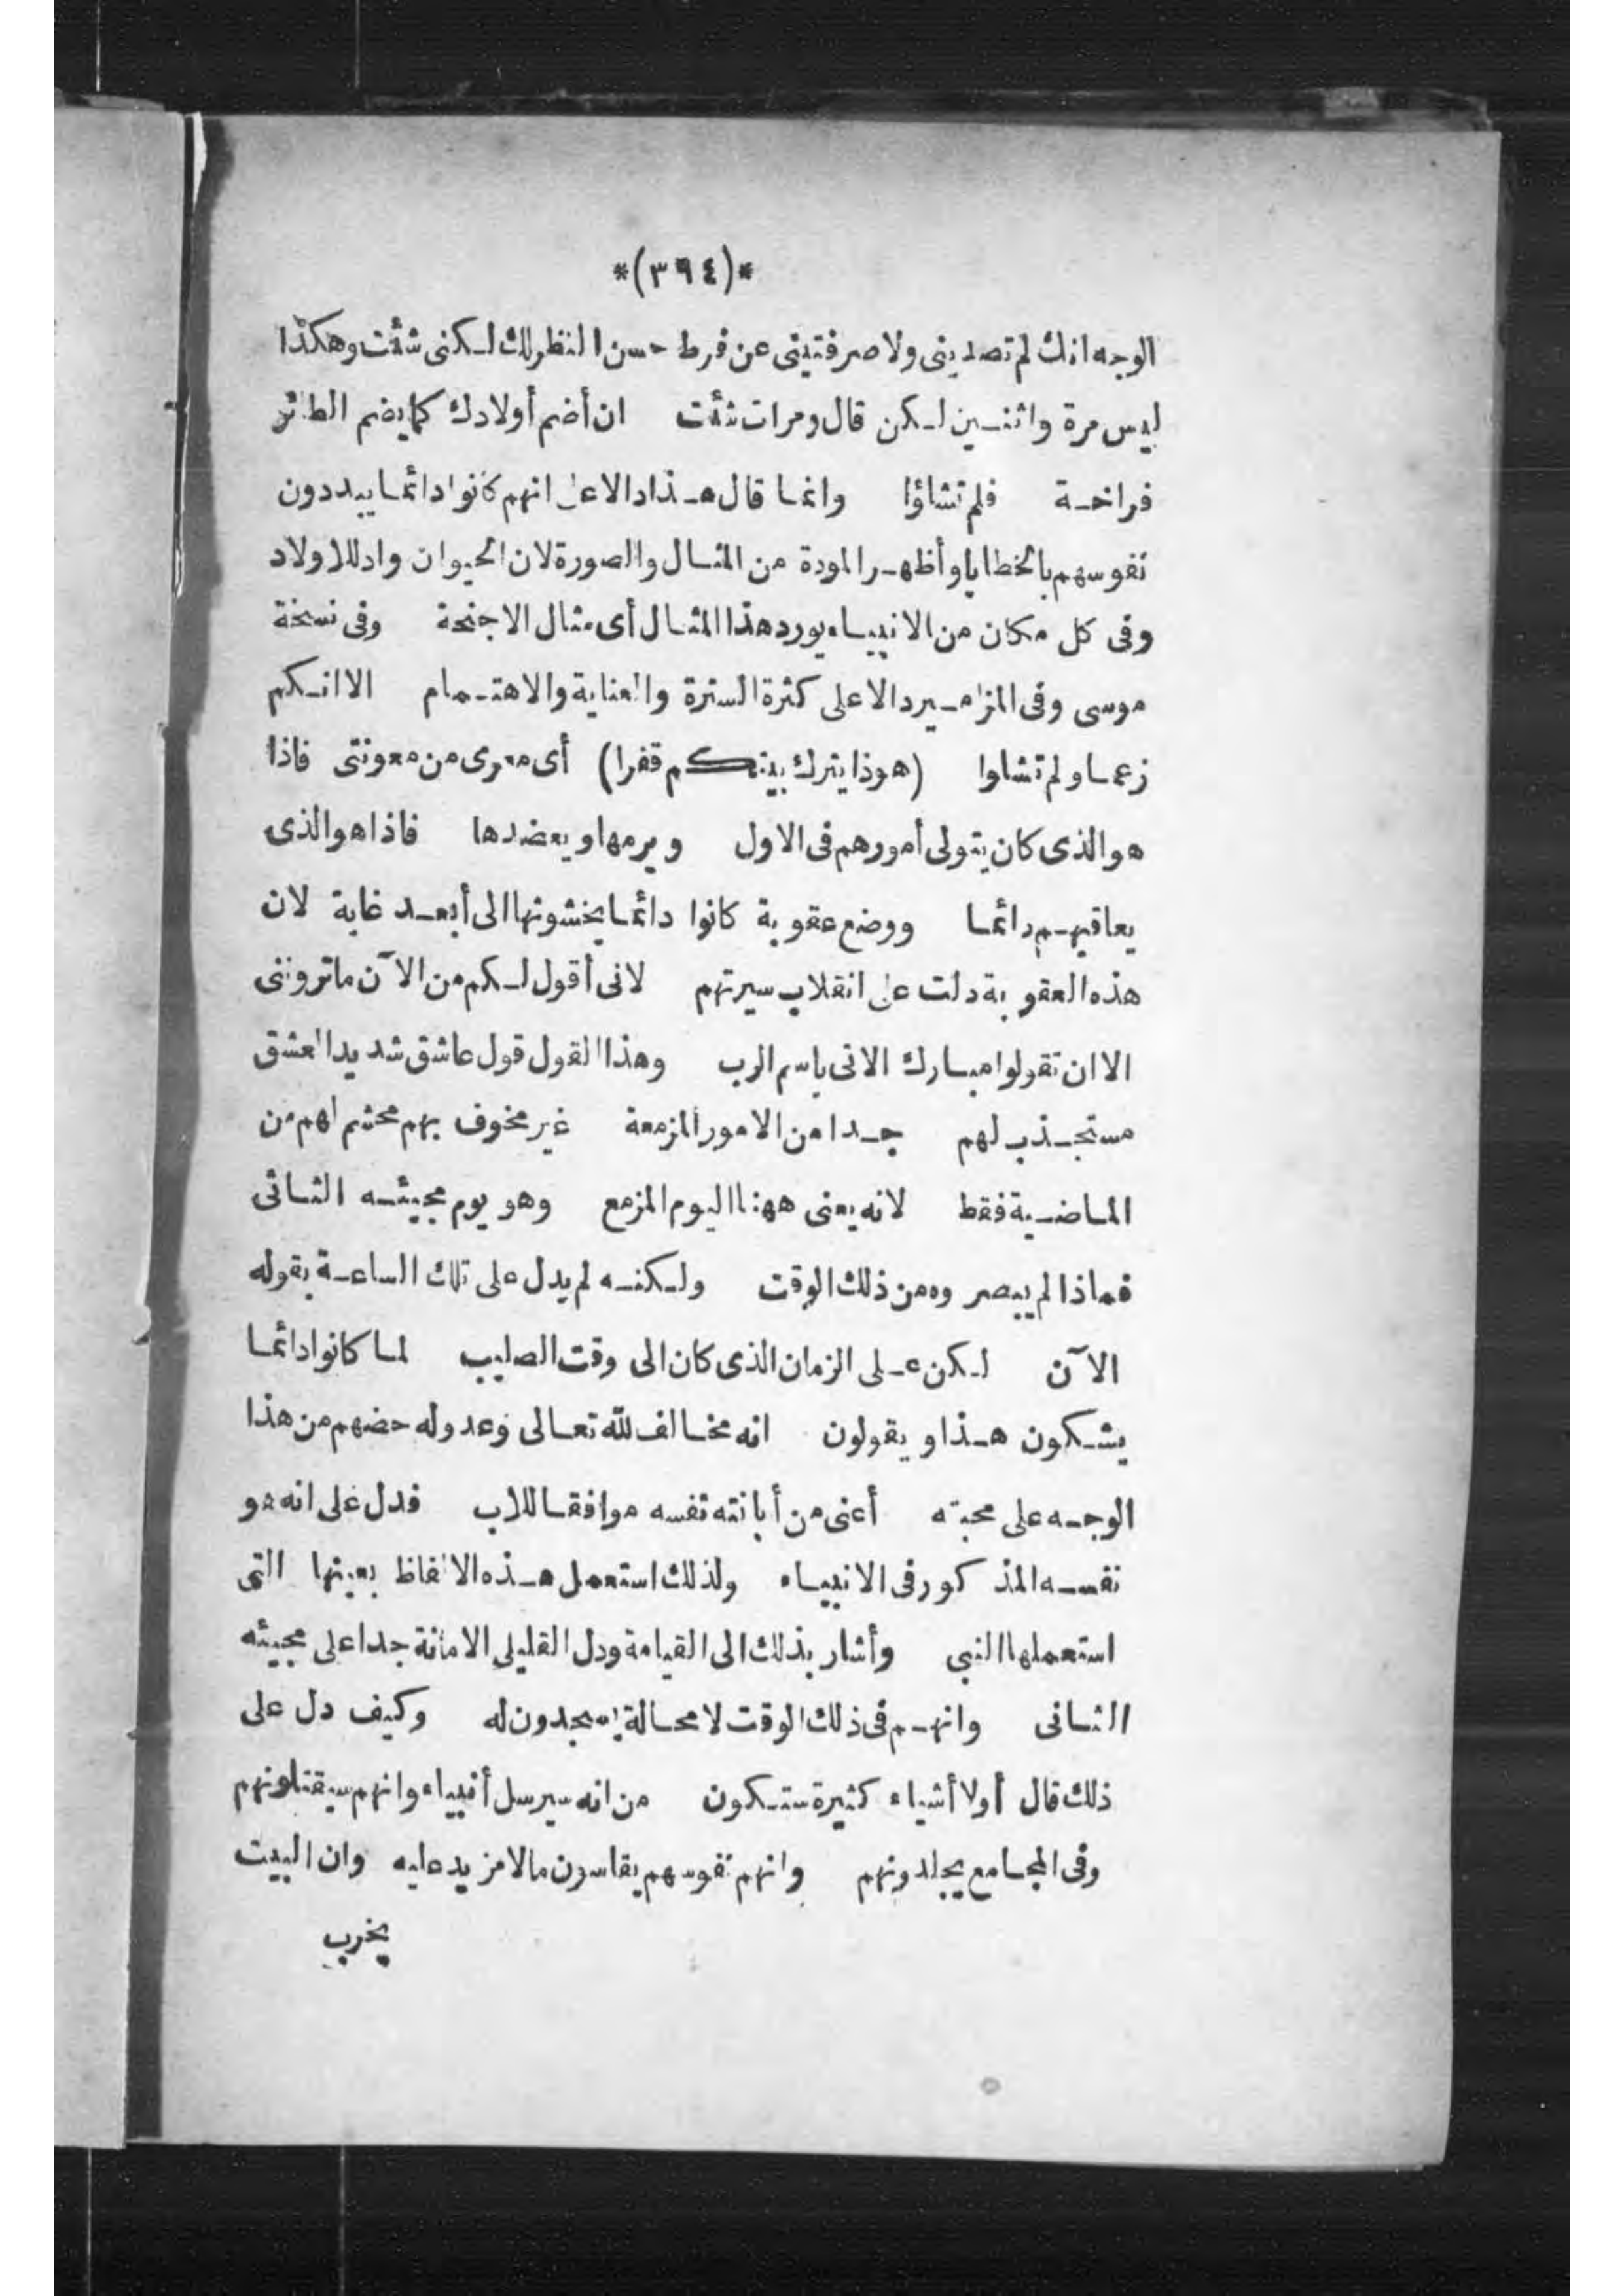 *(٣٩٤)*
الوجه انك لم تصديني ولا صرفتيني عن فرط حسن النظر لك لكني شئت وهكذا
ليس مرة واثنين لكن قال ومرات شئت ان أضم أولادك كما يضم الطائر
فراخه فلم تشاؤا وانما قال هذا دالا على انهم كانوا دائما يبددون
نفوسهم بالخطايا وأظهر المودة من المثال والصورة لان الحيوان واد للاولاد
وفى كل مكان من الانبياء يورد هذا المثال أى مثال الاجنحة وفى نسخة
موسى وفى المزامير دالا على كثرة السترة والعناية والاهتمام الا انكم
زعما ولم تشاوا (هوذا يترك بيتكم قفرا) أى معرى من معونتى فاذا
هو الذى كان يتولى أمورهم فى الاول ويرمها ويعضدها فاذا هو الذى
يعاقبهم دائما ووضع عقوبة كانوا دائما يخشونها الى أبعد غاية لان
هذه العقوبة دلت على انقلاب سيرتهم لانى أقول لكم من الآن ما تروننى
الا ان تقولوا مبارك الاتى باسم الرب وهذا القول قول عاشق شديد العشق
مستجذب لهم جدا من الامور المزمعة غير مخوف بهم محشم لهم من
الماضية فقط لانه يعنى ههنا اليوم المزمع وهو يوم مجيئه الثانى
فماذا لم يبصروه من ذلك الوقت ولكنه لم يدل على تلك الساعة بقوله
الآن لكن على الزمان الذى كان الى وقت الصليب لما كانوا دائما
يشكون هذا ويقولون انه مخالف لله تعالى وعدو له حضهم من هذا
الوجه على محبته أعنى من أبانته نفسه موافقا للاب فدل على انه هو
نفسه المذكور فى الانبياء ولذلك استعمل هذه الالفاظ بعينها التى
استعملها النبي وأشار بذلك الى القيامة ودل القليلى الامانة جدا على مجيئه
الثانى وانهم فى ذلك الوقت لا محالة يسجدون له وكيف دل على
ذلك قال أولا أشياء كثيرة ستكون من انه سيرسل أنبياء وانهم سيقتلونهم
وفى المجامع يجلدونهم وانهم نفوسهم يقاسون مالا مزيد عليه وان البيت
يخرب